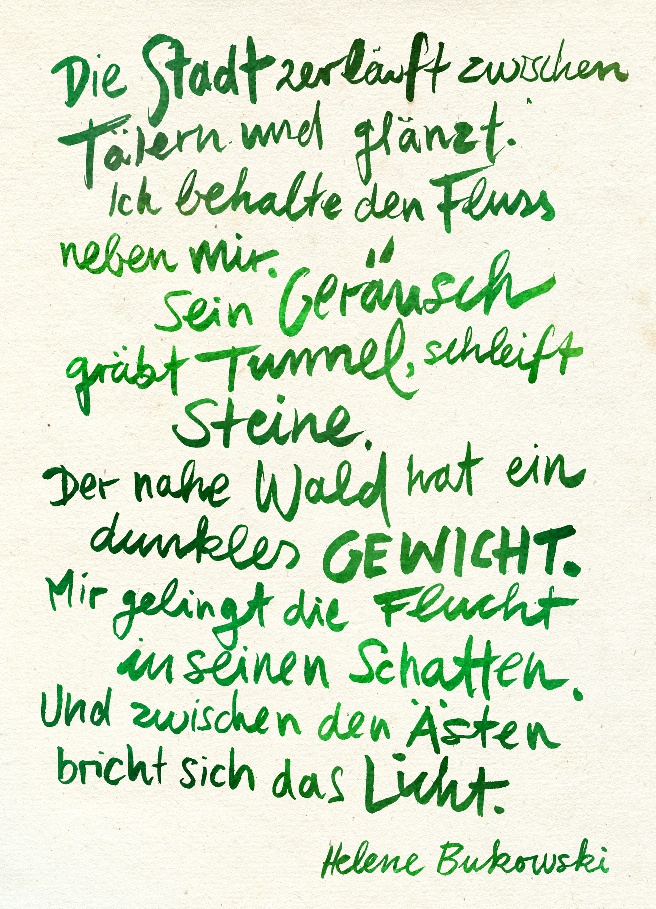 Die Stadt zerläuft zwischen
Tälern und glänzt.
Ich behalte den Fluss
neben mir.
Sein Geräusch
gräbt Tunnel, schleift
Steine.
Der nahe Wald hat ein
dunkles GEWICHT.
Mir gelingt die Flucht
in seinen Schatten.
Und zwischen den Ästen
bricht sich das Licht.
Helene Bukowski